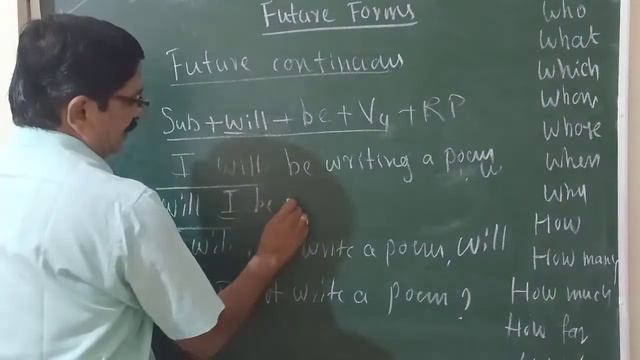 Future Forms
Future continuous
Sub + will + be + V4 + RP
I will be writing a poem.
will I be
write a poem, will
not write a poem?
who
what
which
whom
whose
when
why
How
How many
How much
How far